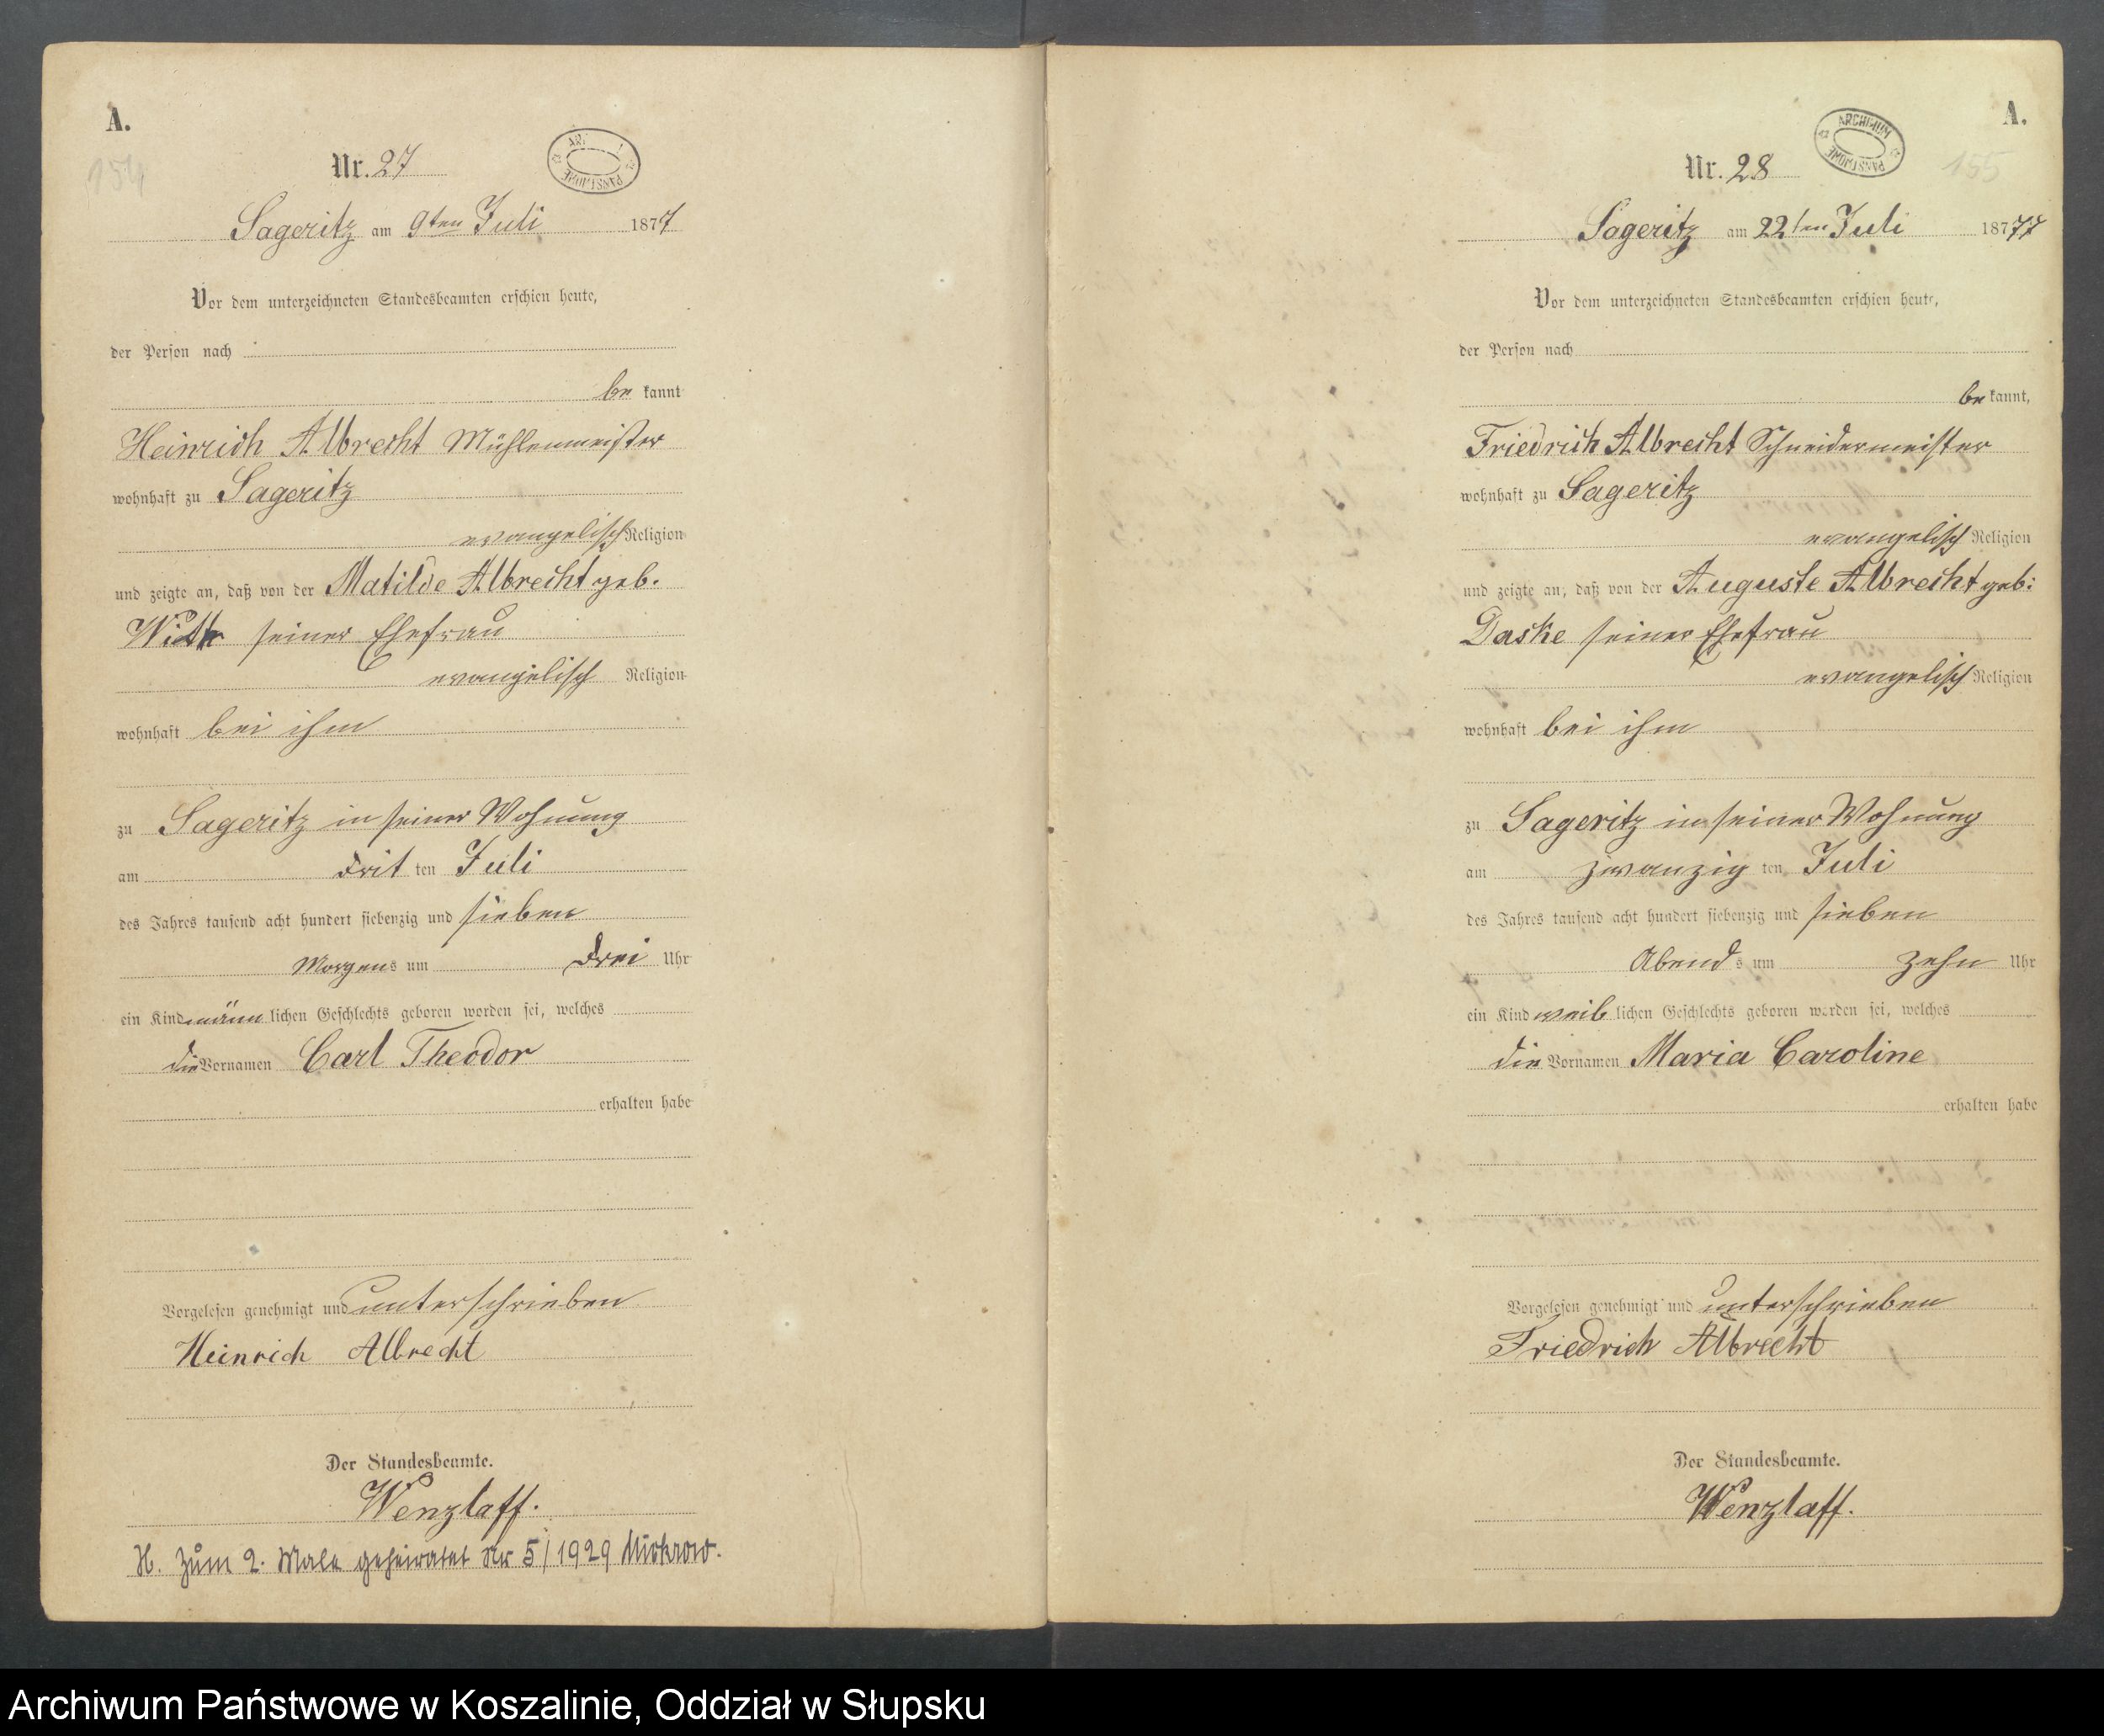 A.
154
Nr. 27
Sageritz am 9ten Juli 1877
Vor dem unterzeichneten Standesbeamten erschien heute,
der Person nach
be kannt
Heinrich Albrecht Mühlenmeister
wohnhaft zu Sageritz
evangelisch Religion
und zeigte an, daß von der Matilde Albrecht geb.
seiner Ehefrau
evangelisch Religion
wohnhaft bei ihm
zu Sageritz in seiner Wohnung
am drit ten Juli
des Jahres tausend acht hundert siebenzig und sieben
Morgens um drei Uhr
ein Kind männ lichen Geschlechts geboren worden sei, welches
die Vornamen Carl Theodor
erhalten habe
Vorgelesen genehmigt und unterschrieben
Heinrich Albrecht
Der Standesbeamte.
Wenzlaff.
H. zum 2. Male geheiratet Nr 5/1929 Mickrow.
A.
155
ARCHIWUM PAŃSTWOWE
Nr. 28
Sageritz am 22ten Juli 1877
Vor dem unterzeichneten Standesbeamten erschien heute,
der Person nach
be kannt,
Friedrich Albrecht Schneidermeister
wohnhaft zu Sageritz
evangelisch Religion
und zeigte an, daß von der Auguste Albrecht geb:
Daske seiner Ehefrau
evangelisch Religion
wohnhaft bei ihm
zu Sageritz in seiner Wohnung
am zwanzig ten Juli
des Jahres tausend acht hundert siebenzig und sieben
Abends um zehn Uhr
ein Kind weib lichen Geschlechts geboren worden sei, welches
die Vornamen Maria Caroline
erhalten habe
Vorgelesen genehmigt und unterschrieben
Friedrich Albrecht
Der Standesbeamte.
Wenzlaff.
Archiwum Państwowe w Koszalinie, Oddział w Słupsku